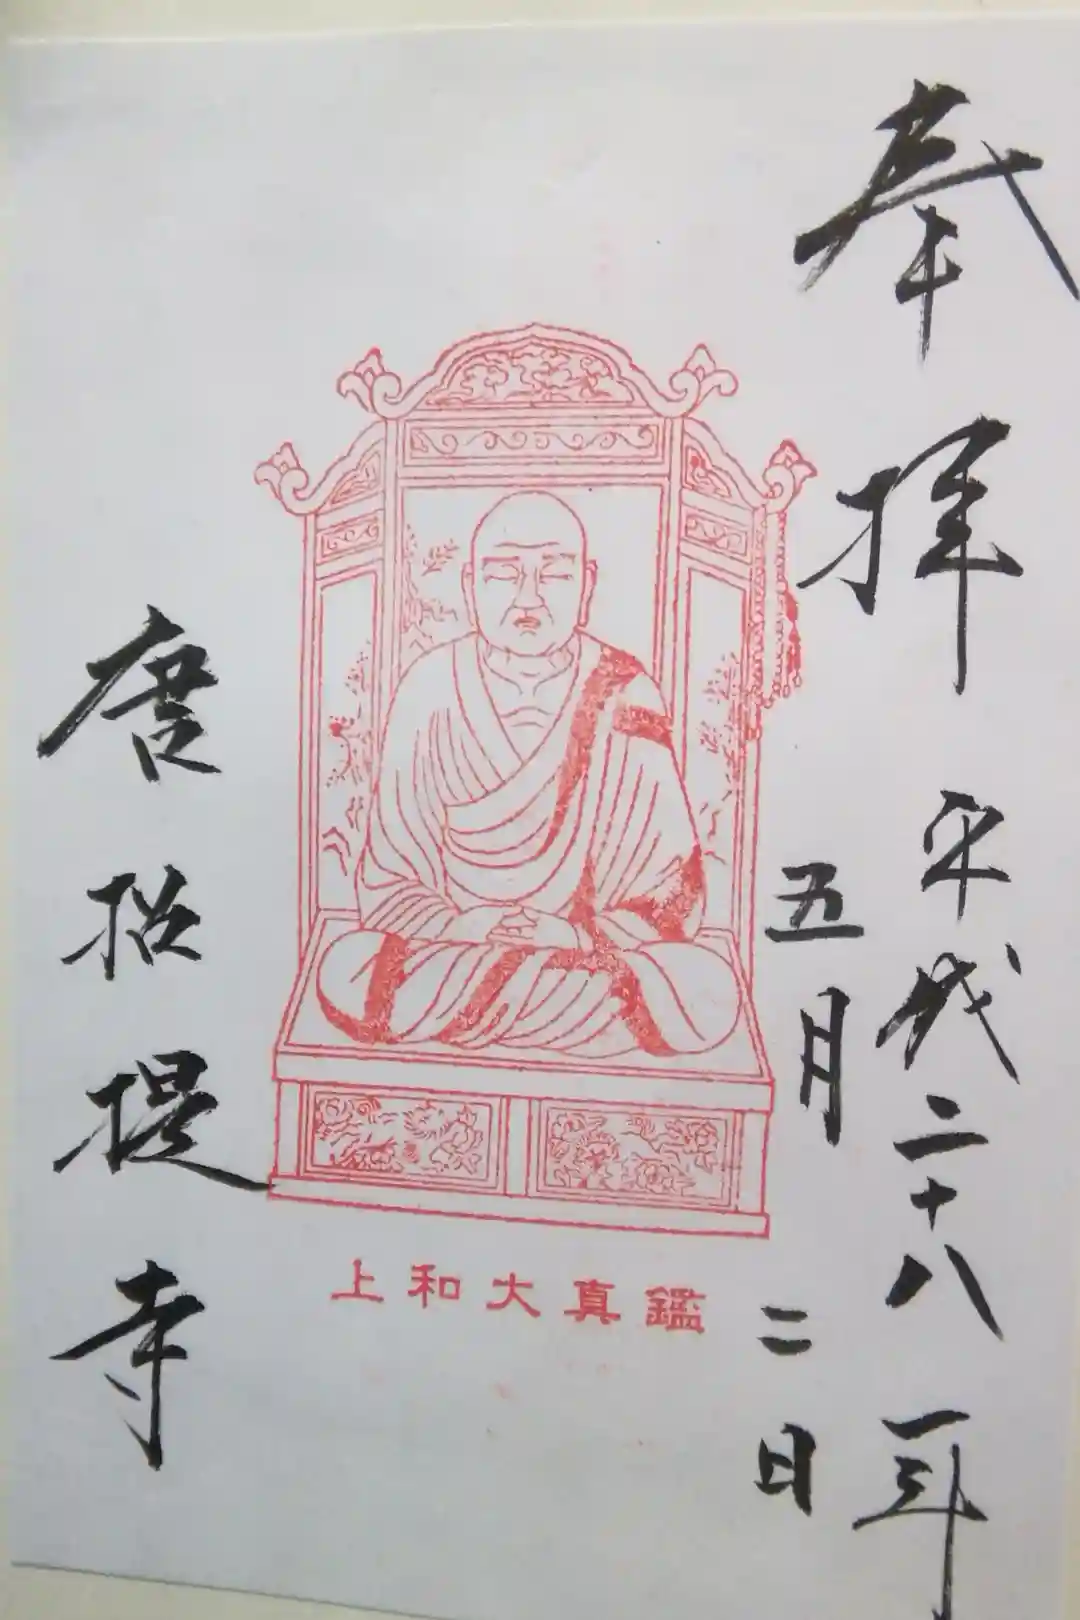 奉拝
平成二十八年
五月二日
鑑真大和上
唐招提寺